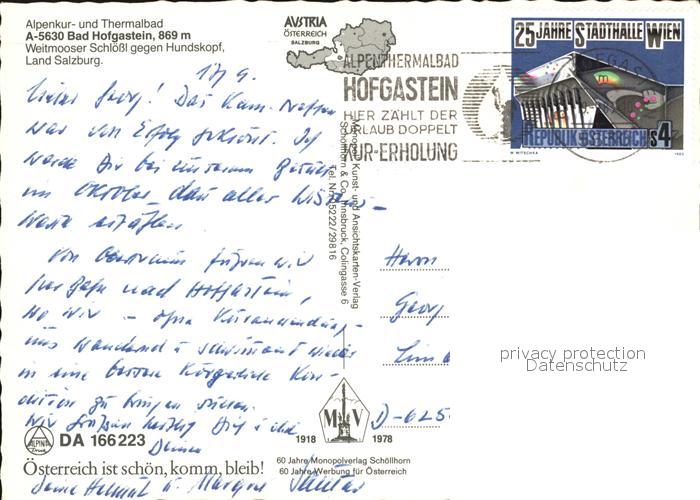 Alpenkur- und Thermalbad
A-5630 Bad Hofgastein, 869 m
Weitmooser Schlößl gegen Hundskopf,
Land Salzburg.
AVSTRIA
ÖSTERREICH
SALZBURG
ALPENTHERMALBAD
HOFGASTEIN
HIER ZÄHLT DER
URLAUB DOPPELT
KUR-ERHOLUNG
25 JAHRE STADTHALLE WIEN
REPUBLIK ÖSTERREICH S4
17/9.
Lieber Georg! Das Kam. Treffen
war von Erfolg gekrönt. Ich
werde Dir bei unserem
im Oktober, dann alles Wissens-
werte erzählen.
Von fuhren wir
per Bahn nach Hofgastein,
wo wir – ohne Kuranwendung –
uns wandernd u schwimmend wieder
in eine bessere körperliche Kon-
dition zu bringen suchen.
Wir grüßen herzlich Dich u die
Deinen
Deine Helmut u. Margret
Monopol Kunst- und Ansichtskarten-Verlag
Schöllhorn & Co., Innsbruck, Colingasse 6
Tel. Nr. 05222/29816
Herrn
Georg
D-625
DA 166223
M V
1918 1978
Österreich ist schön, komm, bleib!
60 Jahre Monopolverlag Schöllhorn
60 Jahre Werbung für Österreich
privacy protection
Datenschutz